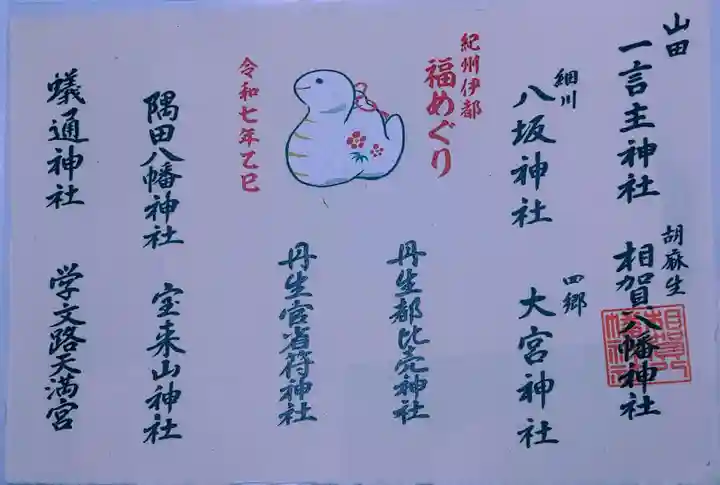 山田
一言主神社
胡麻生
相賀八幡神社
細川
八坂神社
四郷
大宮神社
紀州伊都
福めぐり
令和七年乙巳
丹生都比売神社
丹生官省符神社
隅田八幡神社
宝来山神社
蟻通神社
学文路天満宮